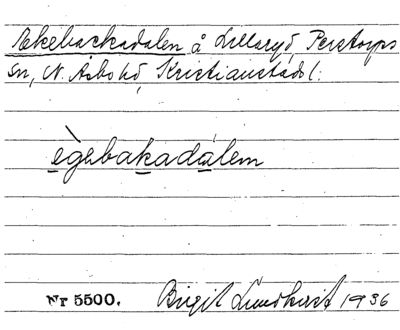 Ekebackadalen å Lillaryd Perstorps
sn, N. Åsbo hd, Kristianstads l.
ègebakadálem
Nr 5500. Birgit Lundkvist 1936